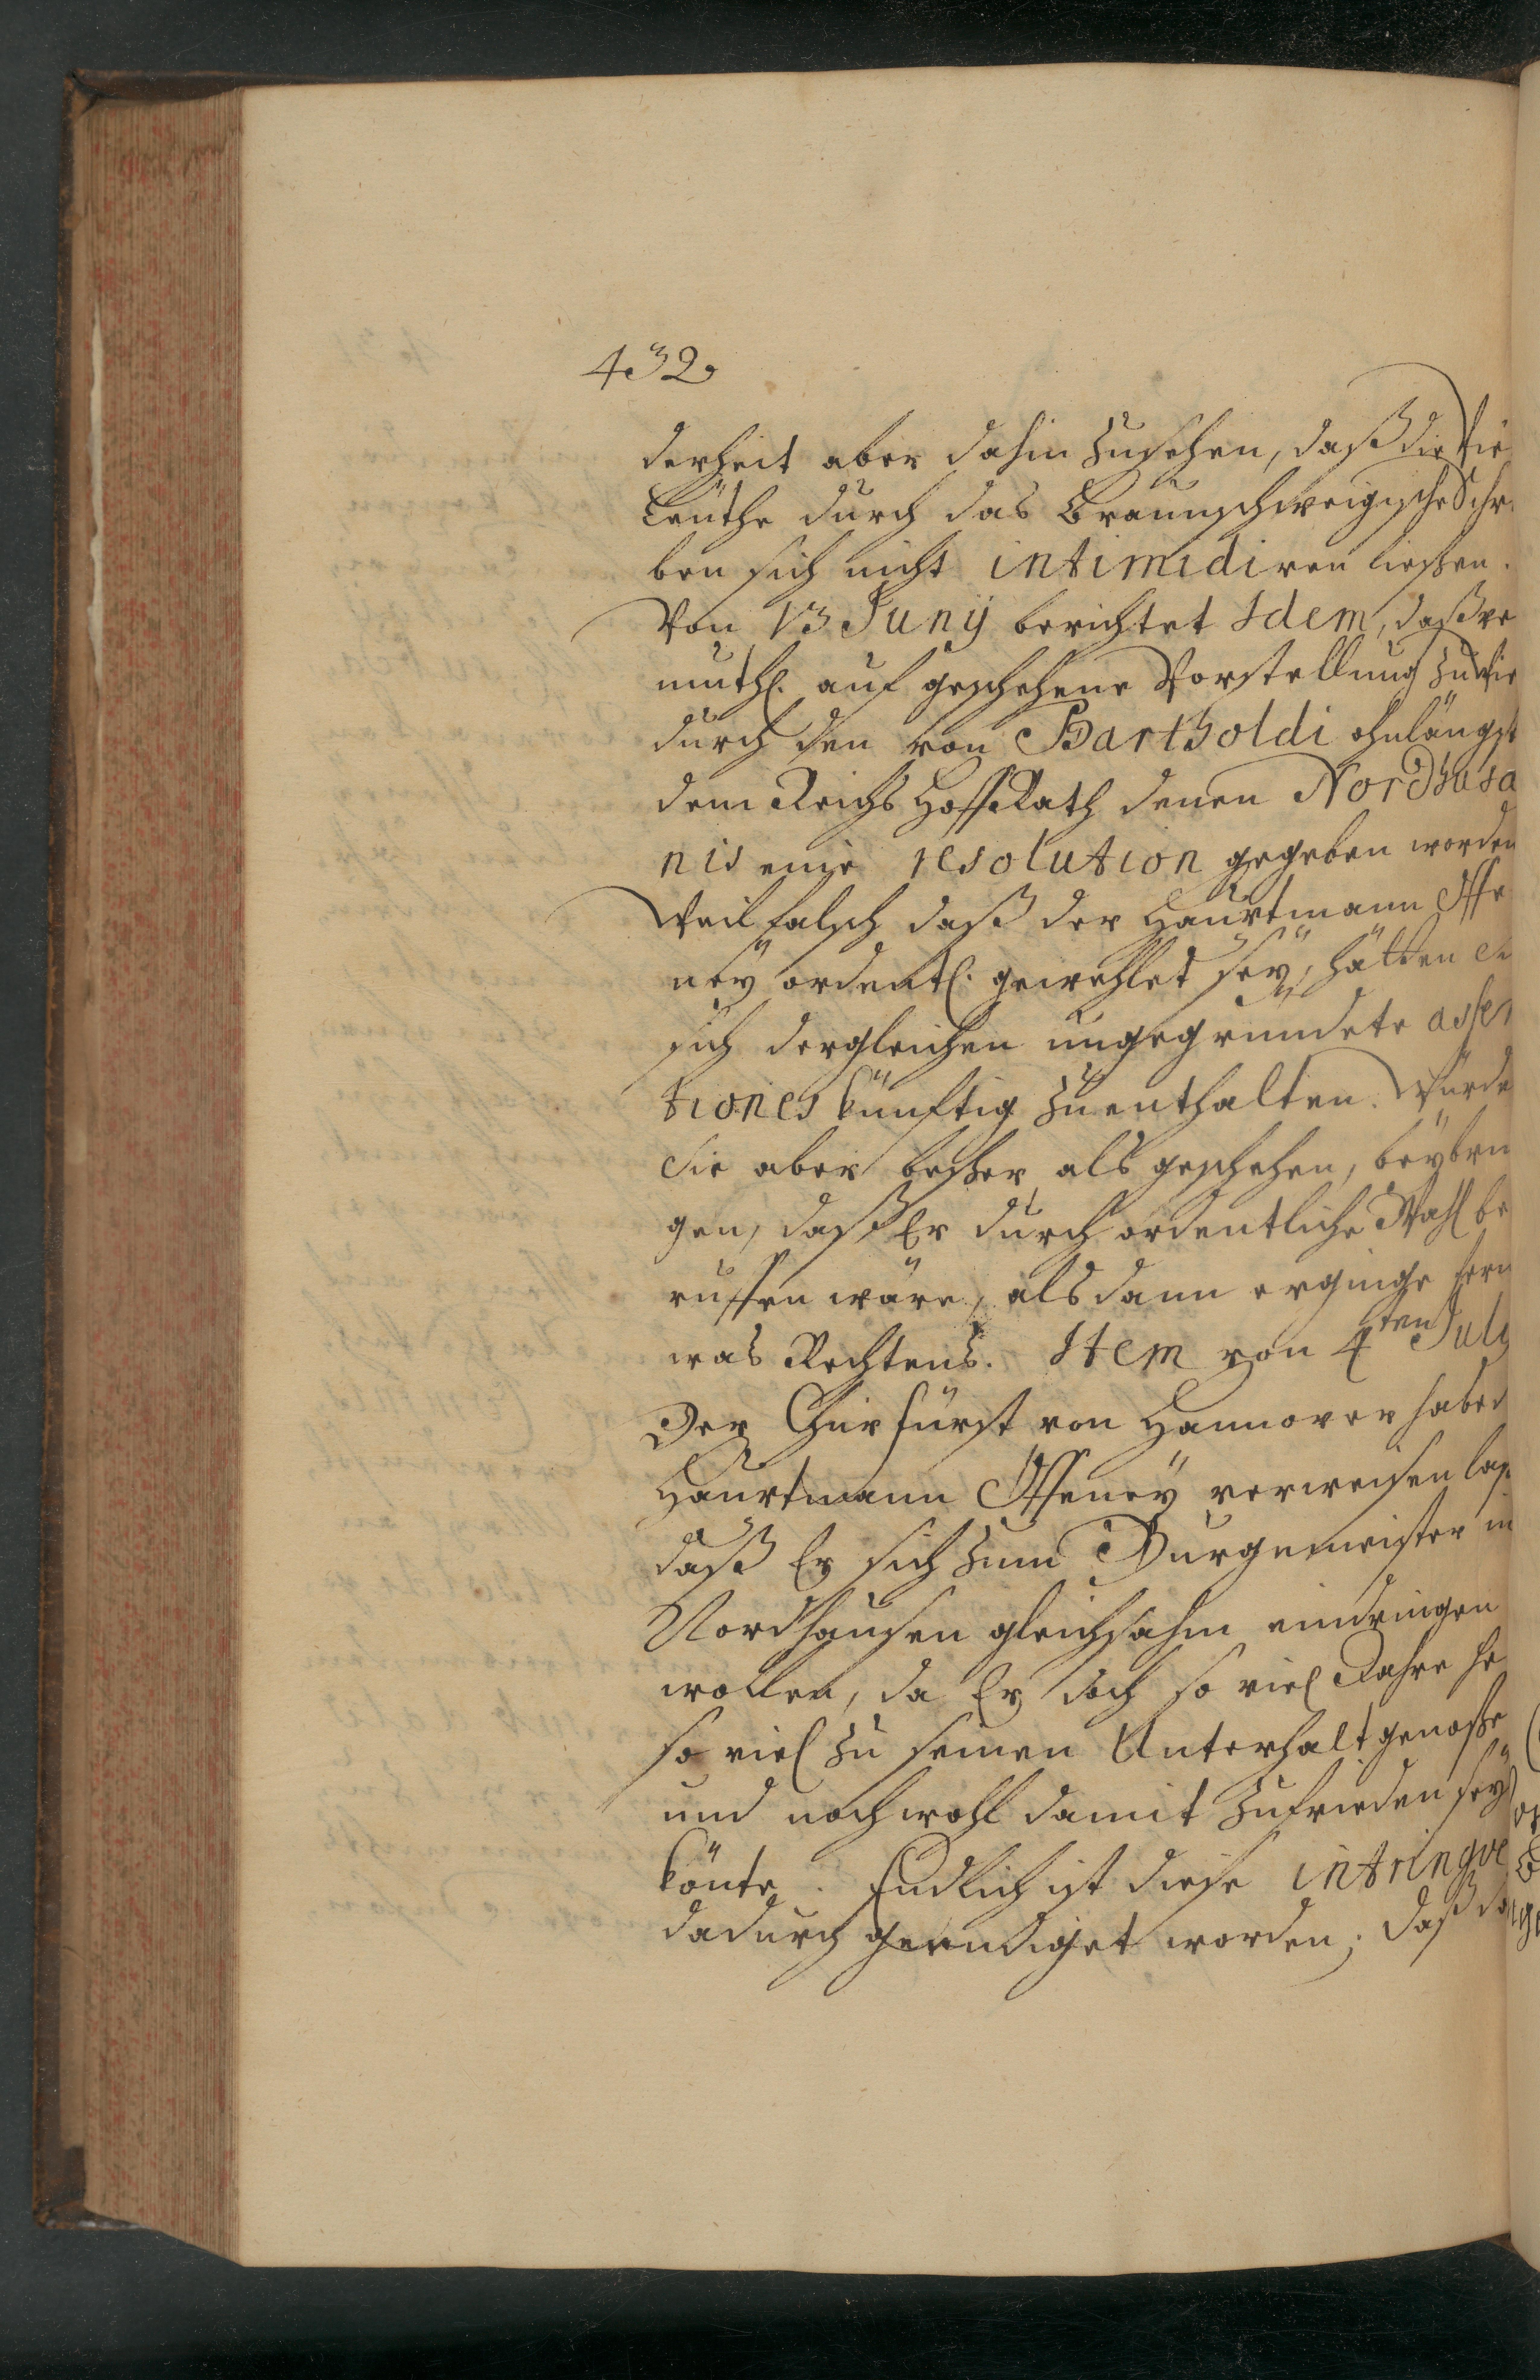 432
derheit aber dahin zusehen, daß die Vie
Leüthe durch das Braunschweigische Schr
ben sich nicht intimidiren ließen.
Von 13 Junij berichtet Idem, daß ver
muthl. auf geschehene Vorstellung zu Wie
durch den von Bartholdi ohnlängst
dem Reichs HoffRath denen Nordhusa
nis eine resolution gegeben worden
Weil falsch daß der Haubtmann Offe
neÿ ordentl. gewehlet seÿ, hätten
sich dergleichen ungegründete asser
tiones künftig zu enthalten. Würde
Sie aber beßer als geschehen, beÿbrin
gen, daß Er durch ordentliche Wahl be
ruffen wäre, alsdann erginge fern
was Rechtens. Item von 4ten July
Der Churfürst von Hannover habe
Haubtmann Offeneÿ verweisen laß
daß Er sich zum Burgemeister in
Nordhausen gleichsahm eindringen
wollen, da Er doch so viel Jahre he
so viel zu seinen Unterhalt genoße
und noch wohl damit zufrieden seÿ
könte. Endlich ist diese intringve
dadurch geendiget worden, daß da